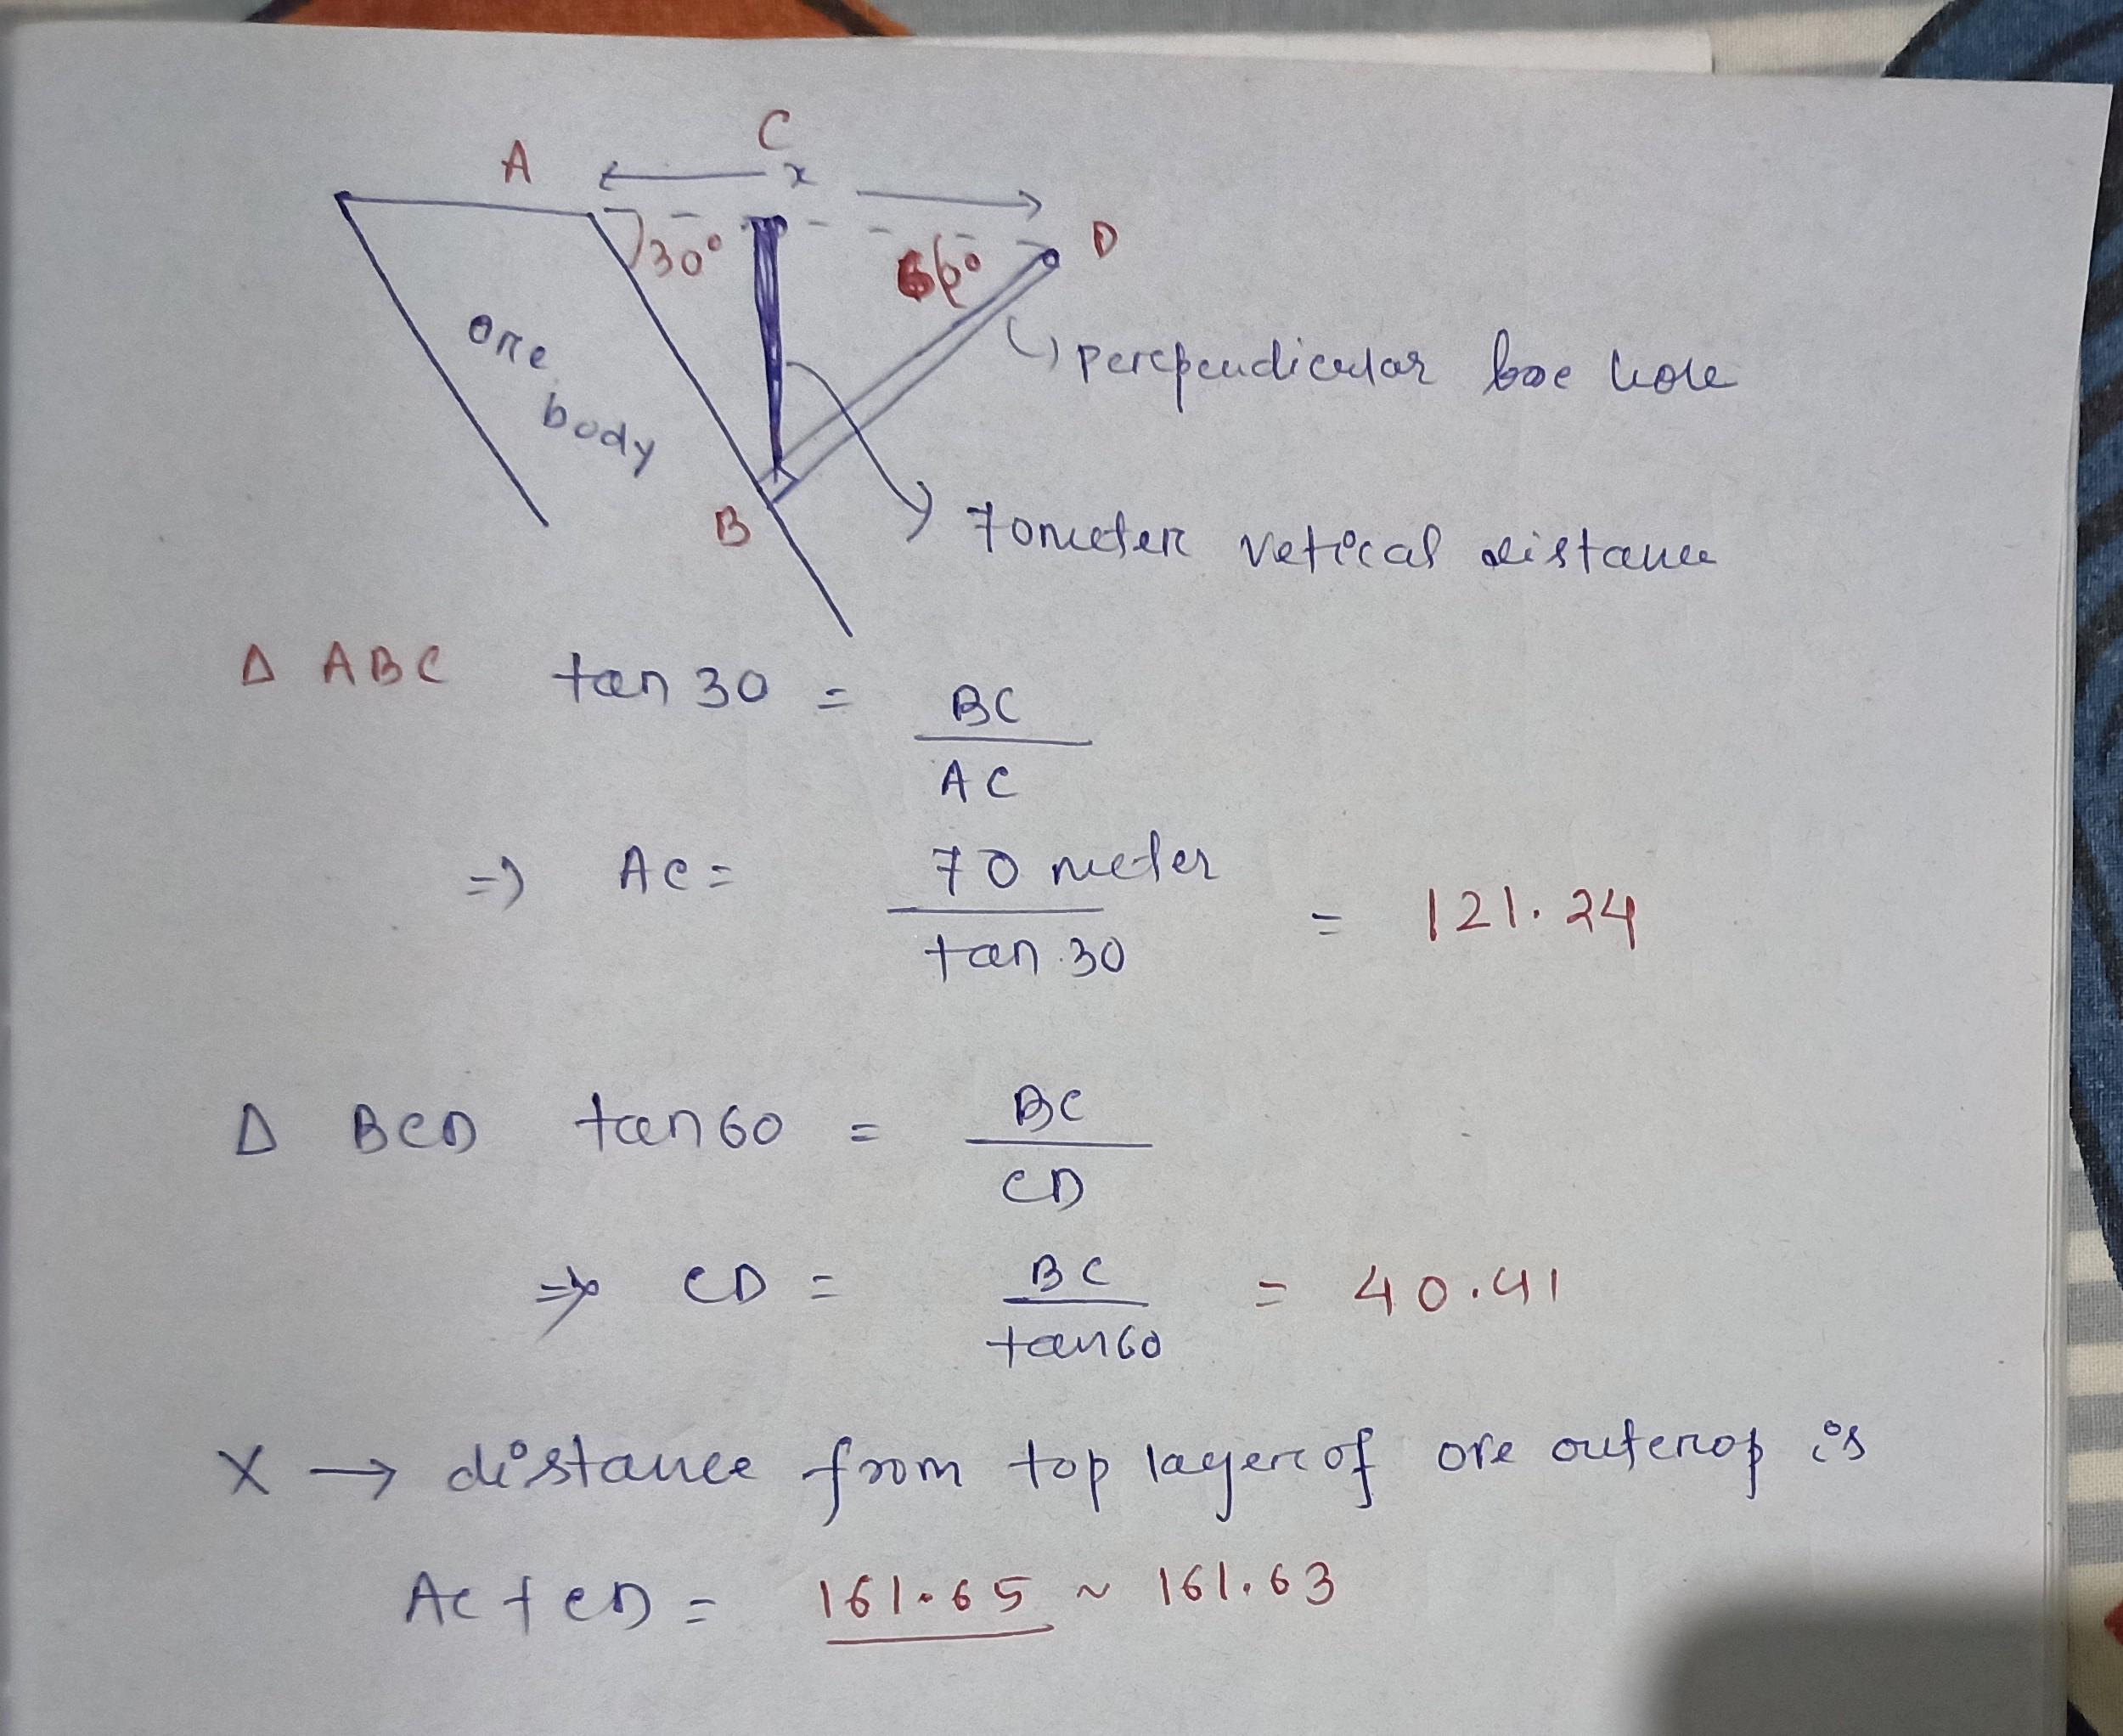 C
A x
30° 60° D
ore
body
perpendicular boe hole
B
70meter vetical distance
Δ ABC tan 30 = BC / AC
=) AC = 70 meter / tan 30 = 121.24
Δ BCD tan 60 = BC / CD
=> CD = BC / tan60 = 40.41
X → distance from top layer of ore outcrop is
AC + CD = 161.65 ~ 161.63